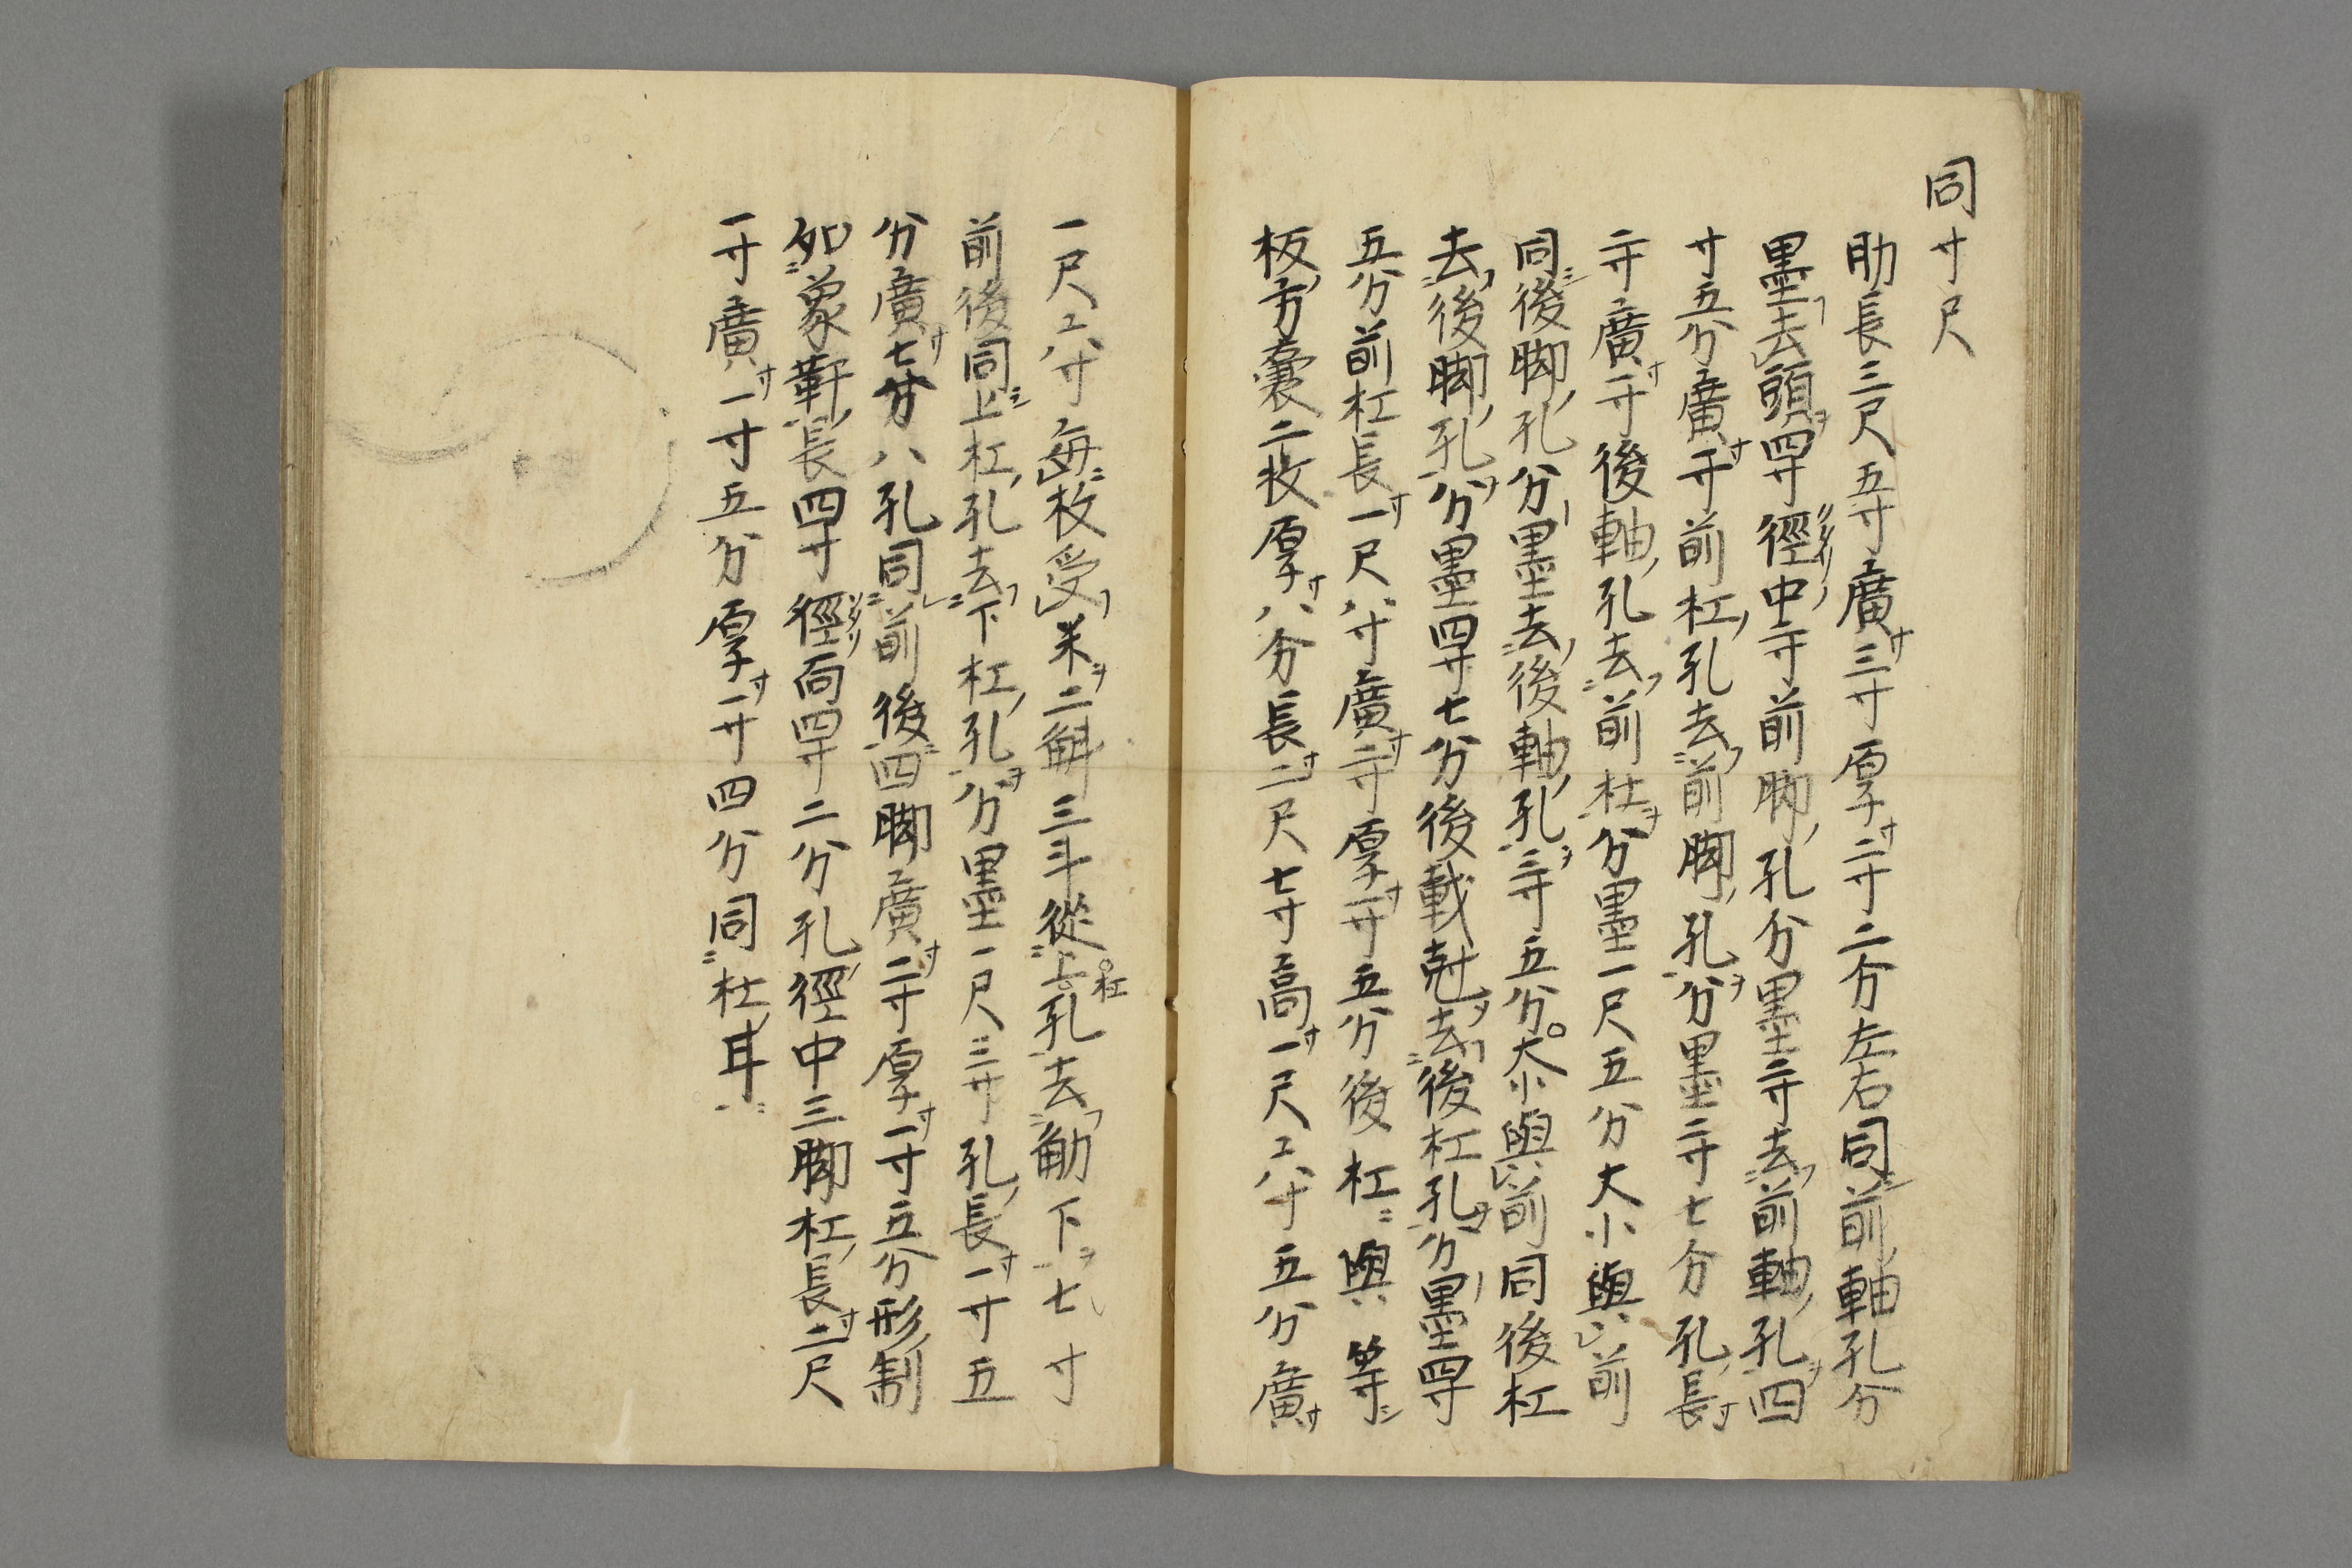 同寸尺
肋長三尺五寸廣三寸厚二寸二分左右同前軸孔分
墨去頭四寸徑中二寸前脚孔分墨二寸去前軸孔四
寸五分廣一寸前杠孔去前脚孔分墨二寸七分孔長
二寸廣一寸後軸孔去前杜分墨一尺五分大小與前
同後脚孔分墨去後軸孔三寸五分大小與前同後杠
去後脚孔分墨四寸七分後載尅去後杠孔分墨四寸
五分前杠長一尺八寸廣二寸厚一寸五分後杠與等
板方囊二枚厚八分長二尺七寸高一尺六寸五分廣
一尺六寸每枚受米二斛三斗從上杠孔去肋下七寸
前後同上杠孔去下杠孔分墨一尺三寸孔長一寸五
分廣七分八孔同前後四脚廣二寸厚一寸五分形制
如象軒長四寸徑面四寸二分孔徑中三脚杠長二尺
一寸廣一寸五分厚一寸四分同杜耳